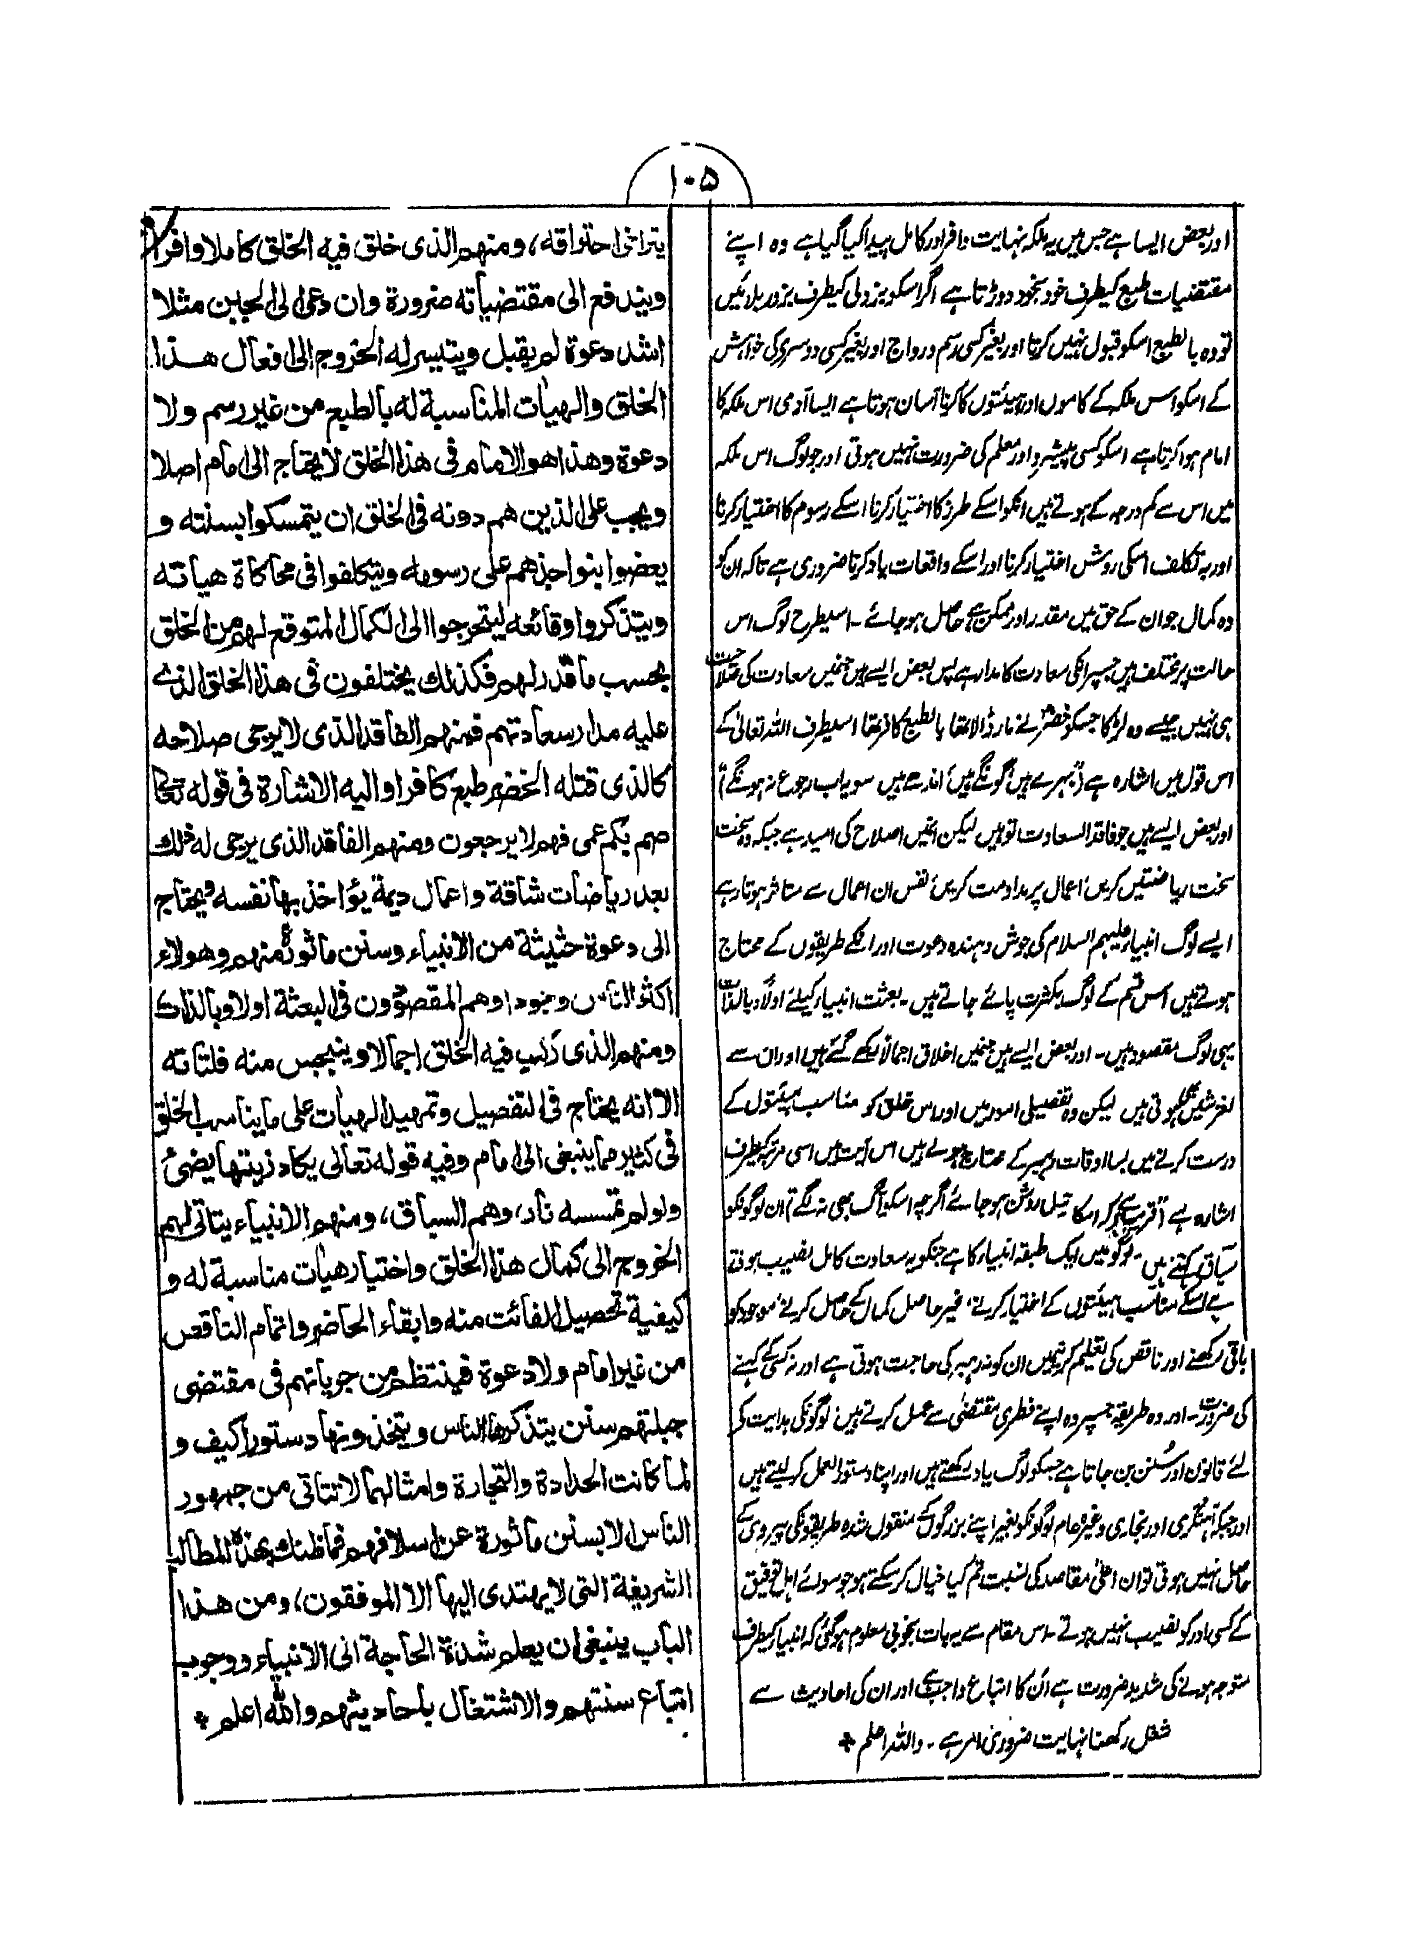 ١٠٥
اور بعض ایسا ہے جس میں یہ ملکہ نہایت وافر اور کامل پیدا کیا گیا ہے وہ اپنے
مقتضیات طبع کیطرف خود بخود دوڑتا ہے اگر اسکو بزدلی کیطرف بزور بلائیں
تو وہ بالطبع اسکو قبول نہیں کرتا اور بغیر کسی رسم و رواج اور بغیر کسی دوسری کی خواہش
کے اسکو اس ملکہ کے کاموں اور ہیئتوں کا کرنا آسان ہوتا ہے ایسا آدمی اس ملکہ کا
امام ہوا کرتا ہے اسکو کسی پیشرو اور معلم کی ضرورت نہیں ہوتی اور جو لوگ اس ملکہ
میں اس سے کم درجہ کے ہوتے ہیں انکو اسکے طرز کا اختیار کرنا اسکے رسوم کا اختیار کرنا
اور بہ تکلف اسکی روش اختیار کرنا اور اسکے واقعات یاد کرنا ضروری ہے تاکہ ان کو
وہ کمال جو ان کے حق میں مقدر اور ممکن ہے حاصل ہو جائے ۔ اسیطرح لوگ اس
حالت پر مختلف ہیں جسپر انکی سعادت کا مدار ہے پس بعض ایسے ہیں جنمیں سعادت کی صلاحیت
ہی نہیں جیسے وہ لڑکا جسکو خضر نے مار ڈالا تھا بالطبع کافر تھا اسیطرف اللہ تعالیٰ کے
اس قول میں اشارہ ہے (بہرے ہیں گونگے ہیں اندھے ہیں سو یہ اب رجوع نہ ہونگے)
اور بعض ایسے ہیں جو فاقد السعادت تو ہیں لیکن انمیں اصلاح کی امید ہے جبکہ وہ سخت
سخت ریاضتیں کریں اعمال پر مداومت کریں نفس ان اعمال سے متاثر ہوتا رہے
ایسے لوگ انبیاء علیہم السلام کی جوش دہندہ دعوت اور انکے طریقوں کے محتاج
ہوتے ہیں اس قسم کے لوگ بکثرت پائے جاتے ہیں ۔ بعثت انبیاء کیلئے اولًا و بالذات
یہی لوگ مقصود ہیں ۔ اور بعض ایسے ہیں جنمیں اخلاق اجمالاً رکھے گئے ہیں اور ان سے
لغزشیں بھی ہوتی ہیں لیکن وہ تفصیلی امور میں اور اس خلق کو مناسب ہیئتوں کے
درست کرنے میں بسا اوقات رہبر کے محتاج ہوتے ہیں اس آیت میں اسی مرتبہ کیطرف
اشارہ ہے (قریب ہے کہ اسکا تیل روشن ہو جائے اگرچہ اسکو آگ بھی نہ لگے) ان لوگونکو
سباق کہتے ہیں ۔ لوگونمیں ایک طبقہ انبیاء کا ہے جنکو یہ سعادت کامل نصیب ہوتی
ہے اسکے مناسب ہیئتوں کے اختیار کرنے، غیر حاصل کمال کے حاصل کرنے، موجود کو
باقی رکھنے اور ناقص کی تعلیم کرنیمیں ان کو نہ رہبر کی حاجت ہوتی ہے اور نہ کسی کے کہنے
کی ضرورت ۔ اور وہ طریقہ جسپر وہ اپنے فطری مقتضیٰ سے عمل کرتے ہیں لوگونکی ہدایت کے
لئے قانون اور سنن بن جاتا ہے جسکو لوگ یاد رکھتے ہیں اور اپنا دستور العمل کر لیتے ہیں
اور جبکہ آہنگری اور نجاری وغیرہ عام لوگونکو بغیر اپنے بزرگوں کے منقول شدہ طریقونکی پیروی کے
حاصل نہیں ہوتی تو ان اعلیٰ مقاصد کی نسبت تم کیا خیال کر سکتے ہو جو سوائے اہل توفیق
کے کسی اور کو نصیب نہیں ہوتے ۔ اس مقام سے یہ بات بخوبی معلوم ہو گئی کہ انبیاء کیطرف
متوجہ ہونے کی شدید ضرورت ہے ان کا اتباع واجب ہے اور ان کی احادیث سے
شغل رکھنا نہایت ضروری امر ہے ۔ واللہ اعلم +
يتراخى احتراقه، ومنهم الذى خلق فيه الخلق كاملا وافرا
ويندفع الى مقتضيأته ضرورة وان دعى الى الجبن مثلا
اشد دعوة لم يقبل ويتيسر له الخروج الى افعال هذا
الخلق والهيأت المناسبة له بالطبع من غير رسم ولا
دعوة وهذا هو الامام فى هذا الخلق لا يحتاج الى امام اصلا
ويجب على الذين هم دونه فى الخلق ان يتمسكوا بسنته و
يعضوا بنواجذهم على رسومه ويتكلفوا فى محاكاة هيأته
ويتذكروا وقائعه ليتحرجوا الى الكمال المتوقع لهم من الخلق
بحسب ما قدر لهم فكذلك يختلفون فى هذا الخلق الذى
عليه مدار سعادتهم فمنهم الفاقد الذى لا يرجى صلاحه
كالذى قتله الخضر طبع كافرا واليه الاشارة فى قوله تعالى
صم بكم عمى فهم لا يرجعون ومنهم الفاقد الذى يرجى له ذلك
بعد رياضات شاقة واعمال ديمة يؤاخذ بها نفسه ويحتاج
الى دعوة حثيثة من الانبياء وسنن مأثورة منهم وهولاء
اكثر الناس وجودا وهم المقصودون فى البعثة اولا وبالذات
ومنهم الذى ركب فيه الخلق اجمالا وينبجس منه فلتاته
الا انه يحتاج فى التفصيل وتمهيد الهيأت على ما يناسب الخلق
فى كثير مما ينبغى الى امام وفيه قوله تعالى يكاد زيتها يضئ
ولو لم تمسسه نار، وهم السباق، ومنهم الانبياء يتأتى لهم
الخروج الى كمال هذا الخلق واختيار هيأت مناسبة له و
كيفية تحصيل الفائت منه وابقاء الحاضر واتمام الناقص
من غير امام ولا دعوة فينتظم من جريانهم فى مقتضى
جبلتهم سنن يتذكرها الناس ويتخذونها دستورا كيف و
لما كانت الحدادة والتجارة وامثالهما لا تتأتى من جمهور
الناس الا بسنن مأثورة عن اسلافهم فما ظنك بهذه المطالب
الشريفة التى لا يهتدى اليها الا الموفقون، ومن هذا
الباب ينبغى ان يعلم شدة الحاجة الى الانبياء ووجوب
اتباع سنتهم والاشتغال باحاديثهم والله اعلم +